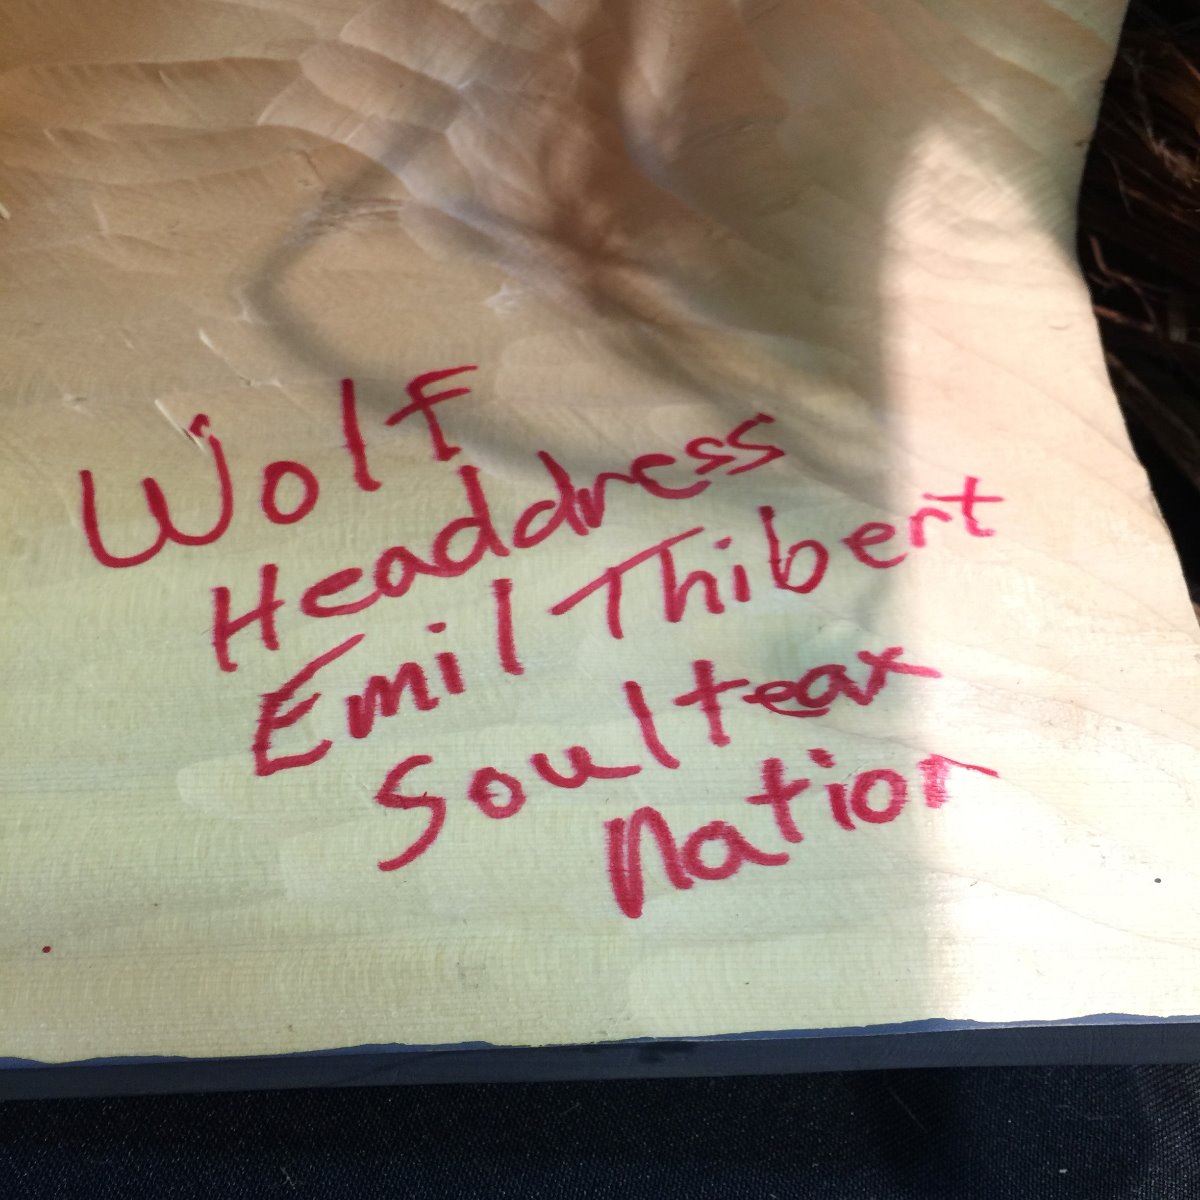 Wolf
Headdress
Emil Thibert
Soulteax
Nation